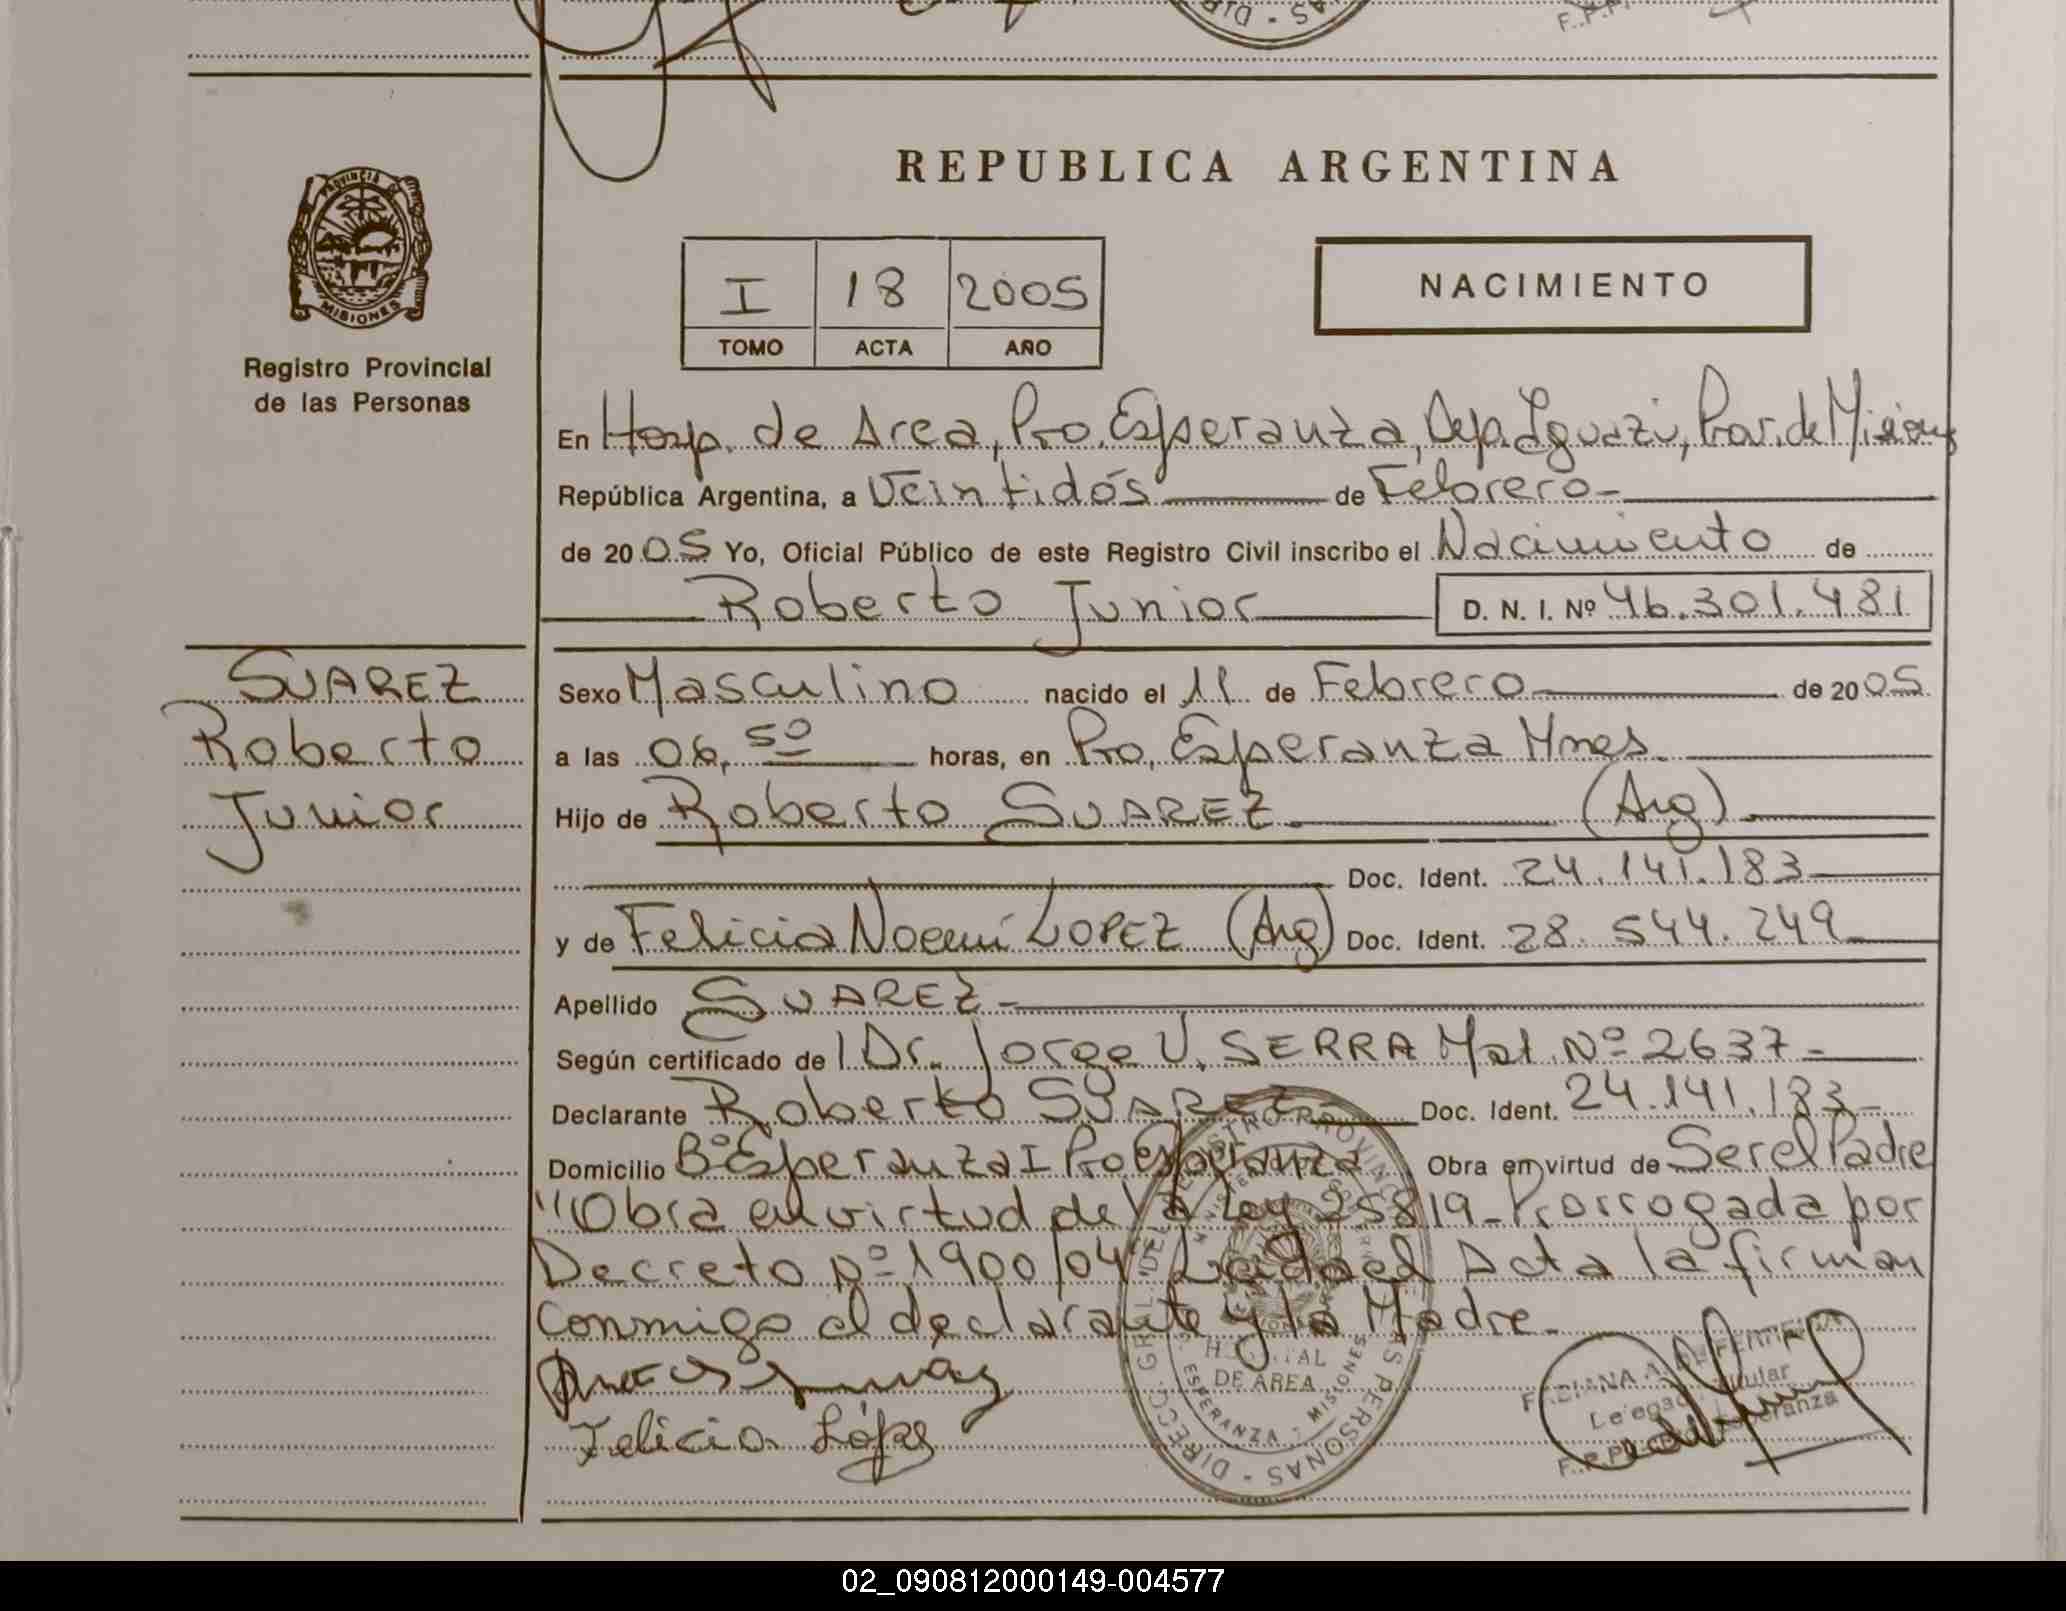 REPUBLICA ARGENTINA
PROVINCIA DE
MISIONES
Registro Provincial
de las Personas
I 18 2005
TOMO ACTA AÑO
NACIMIENTO
En Hosp. de Area, Pto. Esperanza, Dep. Iguazú, Prov. de Misiones
República Argentina, a Veintidós de Febrero
de 2005 Yo, Oficial Público de este Registro Civil inscribo el Nacimiento de
Roberto Junior D. N. I. Nº 46.301.481
SUAREZ
Roberto
Junior
Sexo Masculino nacido el 11 de Febrero de 2005
a las 06,50 horas, en Pto. Esperanza Mnes.
Hijo de Roberto SUAREZ (Arg)
Doc. Ident. 24.141.183
y de Felicia Noemí LOPEZ (Arg) Doc. Ident. 28.544.249
Apellido SUAREZ
Según certificado de l Dr. Jorge V. SERRA Mat. Nº 2637
Declarante Roberto SUAREZ Doc. Ident. 24.141.183
Domicilio Bº Esperanza I Pto Esperanza Obra en virtud de Ser el Padre
"Obra en virtud de la Ley 25819 - Prorrogada por
Decreto Nº 1900/04. Leída el Acta la firman
conmigo el declarante y la Madre.
Felicia López
HOSPITAL
DE AREA
ESPERANZA - MISIONES
02_090812000149-004577